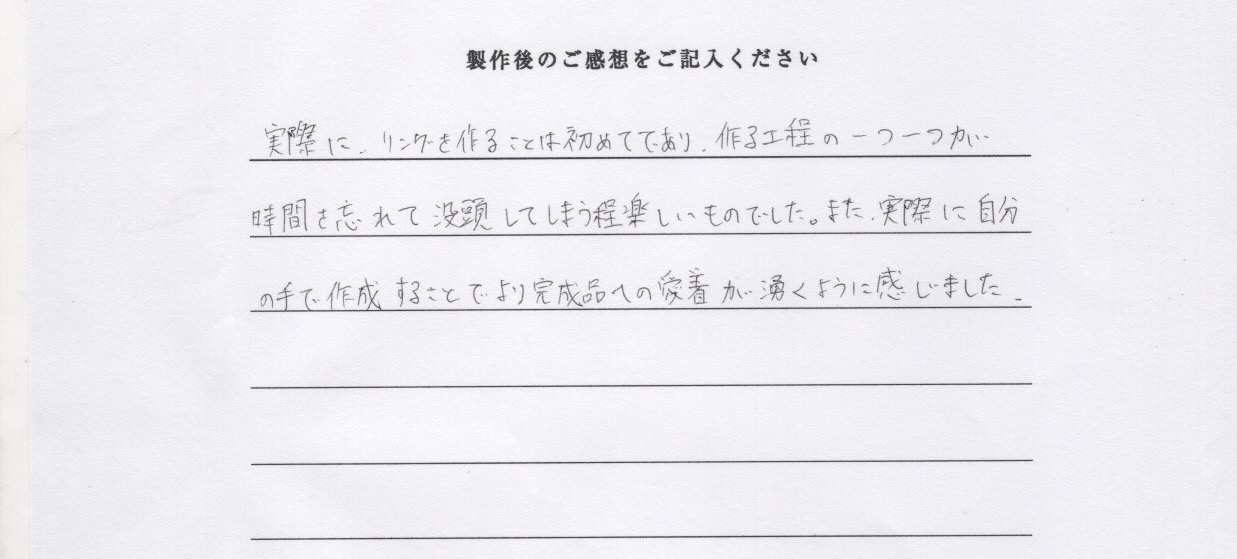 製作後のご感想をご記入ください
実際に、リングを作ることは初めてであり、作る工程の一つ一つが
時間を忘れて没頭してしまう程楽しいものでした。また、実際に自分
の手で作成することでより完成品への愛着が湧くように感じました。